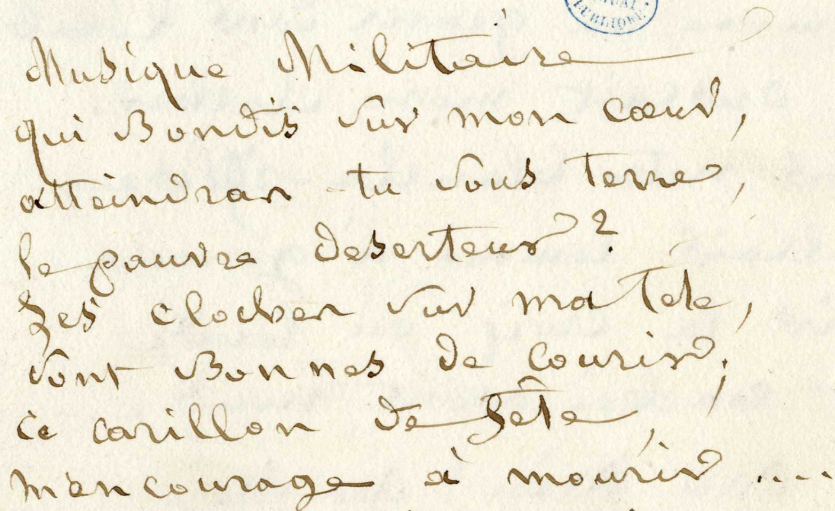 Musique Militaire
qui Bondis sur mon cœur,
atteindras tu sous terre,
le pauvre deserteur ?
Les cloches sur ma tete,
sont Bonnes de courir,
ce carillon de fête,
m'encourage à mourir ....
PUBLIQUE